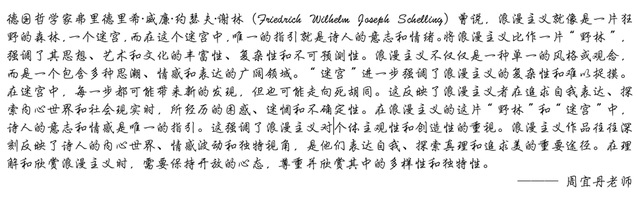 德国哲学家弗里德里希·威廉·约瑟夫·谢林 (Friedrich Wilhelm Joseph Schelling) 曾说, 浪漫主义就像是一片狂
野的森林,一个迷宫,而在这个迷宫中,唯一的指引就是诗人的意志和情绪。将浪漫主义比作一片“野林”,
强调了其思想、艺术和文化的丰富性、复杂性和不可预测性。浪漫主义不仅仅是一种单一的风格或观念,
而是一个包含多种思潮、情感和表达的广阔领域。“迷宫”进一步强调了浪漫主义的复杂性和难以捉摸。
在迷宫中,每一步都可能带来新的发现,但也可能走向死胡同。这反映了浪漫主义者在追求自我表达、探
索内心世界和社会现实时,所经历的困惑、迷惘和不确定性。在浪漫主义的这片“野林”和“迷宫”中,
诗人的意志和情感是唯一的指引。这强调了浪漫主义对个体主观性和创造性的重视。浪漫主义作品往往深
刻反映了诗人的内心世界、情感波动和独特视角,是他们表达自我、探索真理和追求美的重要途径。在理
解和欣赏浪漫主义时,需要保持开放的心态,尊重并欣赏其中的多样性和独特性。
——— 周宜丹老师